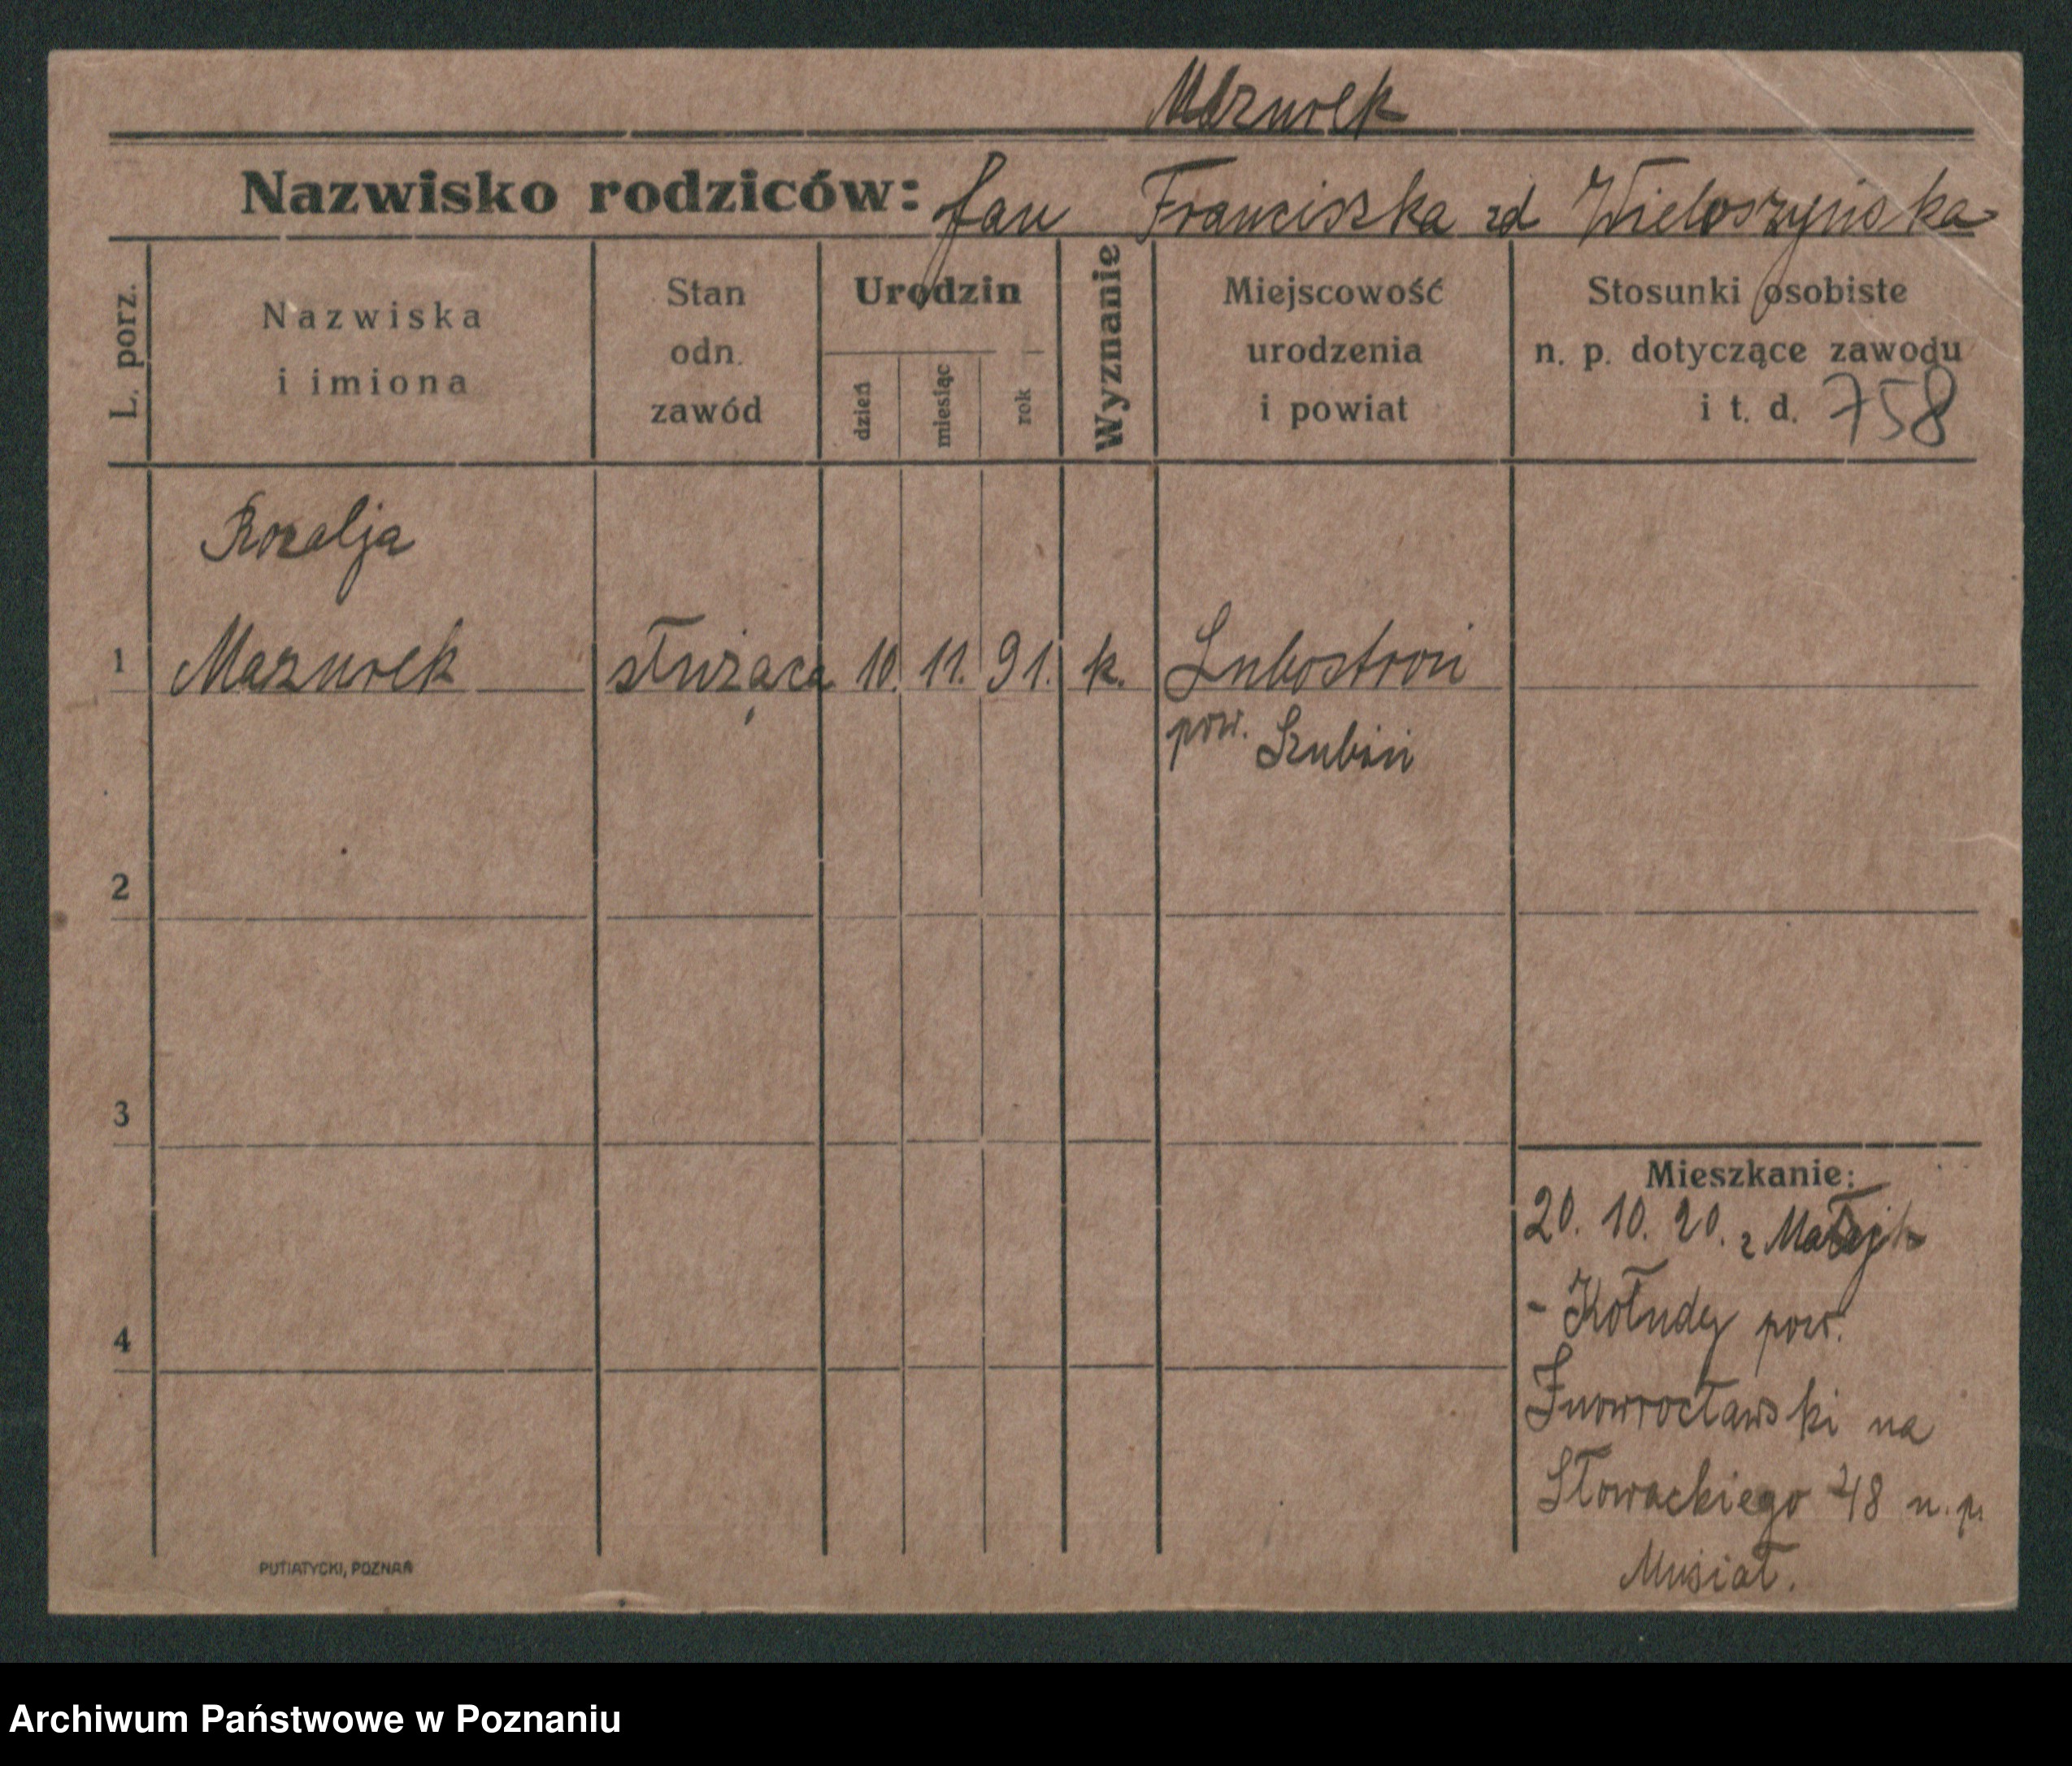 Mazurek
Nazwisko rodziców: Jan Franciszka zd Wieloszyńska
L. porz.
Nazwiska
i imiona
Stan
odn.
zawód
Urodzin
dzień
miesiąc
rok
Wyznanie
Miejscowość
urodzenia
i powiat
Stosunki osobiste
n. p. dotyczące zawodu
i t. d. 758
Rozalja
1 Mazurek służąca 10. 11. 91. k. Lubostroń
pow. Szubin
2
3
4
Mieszkanie:
20. 10. 20. z
- Kołudy pow.
Inowrocławski na
Słowackiego 48 u. p.
Musiał.
PUTIATYCKI, POZNAŃ
Archiwum Państwowe w Poznaniu